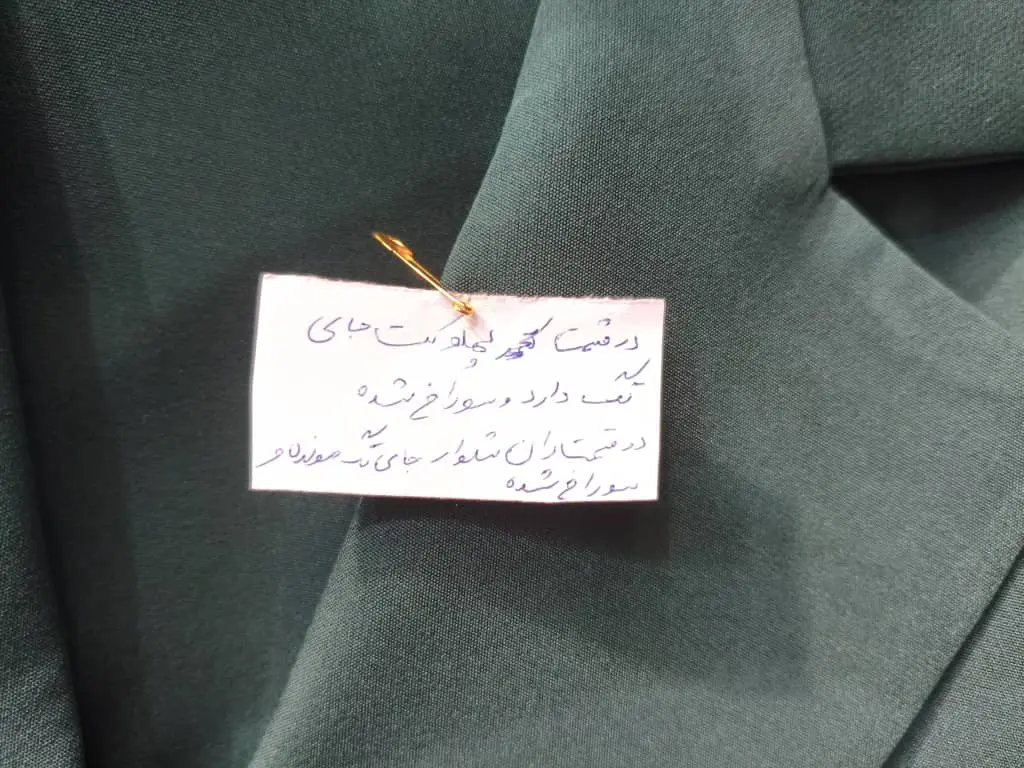 در قسمت پهلو کت جای
تگ دارد و سوراخ شده
در قسمت ران شلوار جای تگ مونده و
سوراخ شده